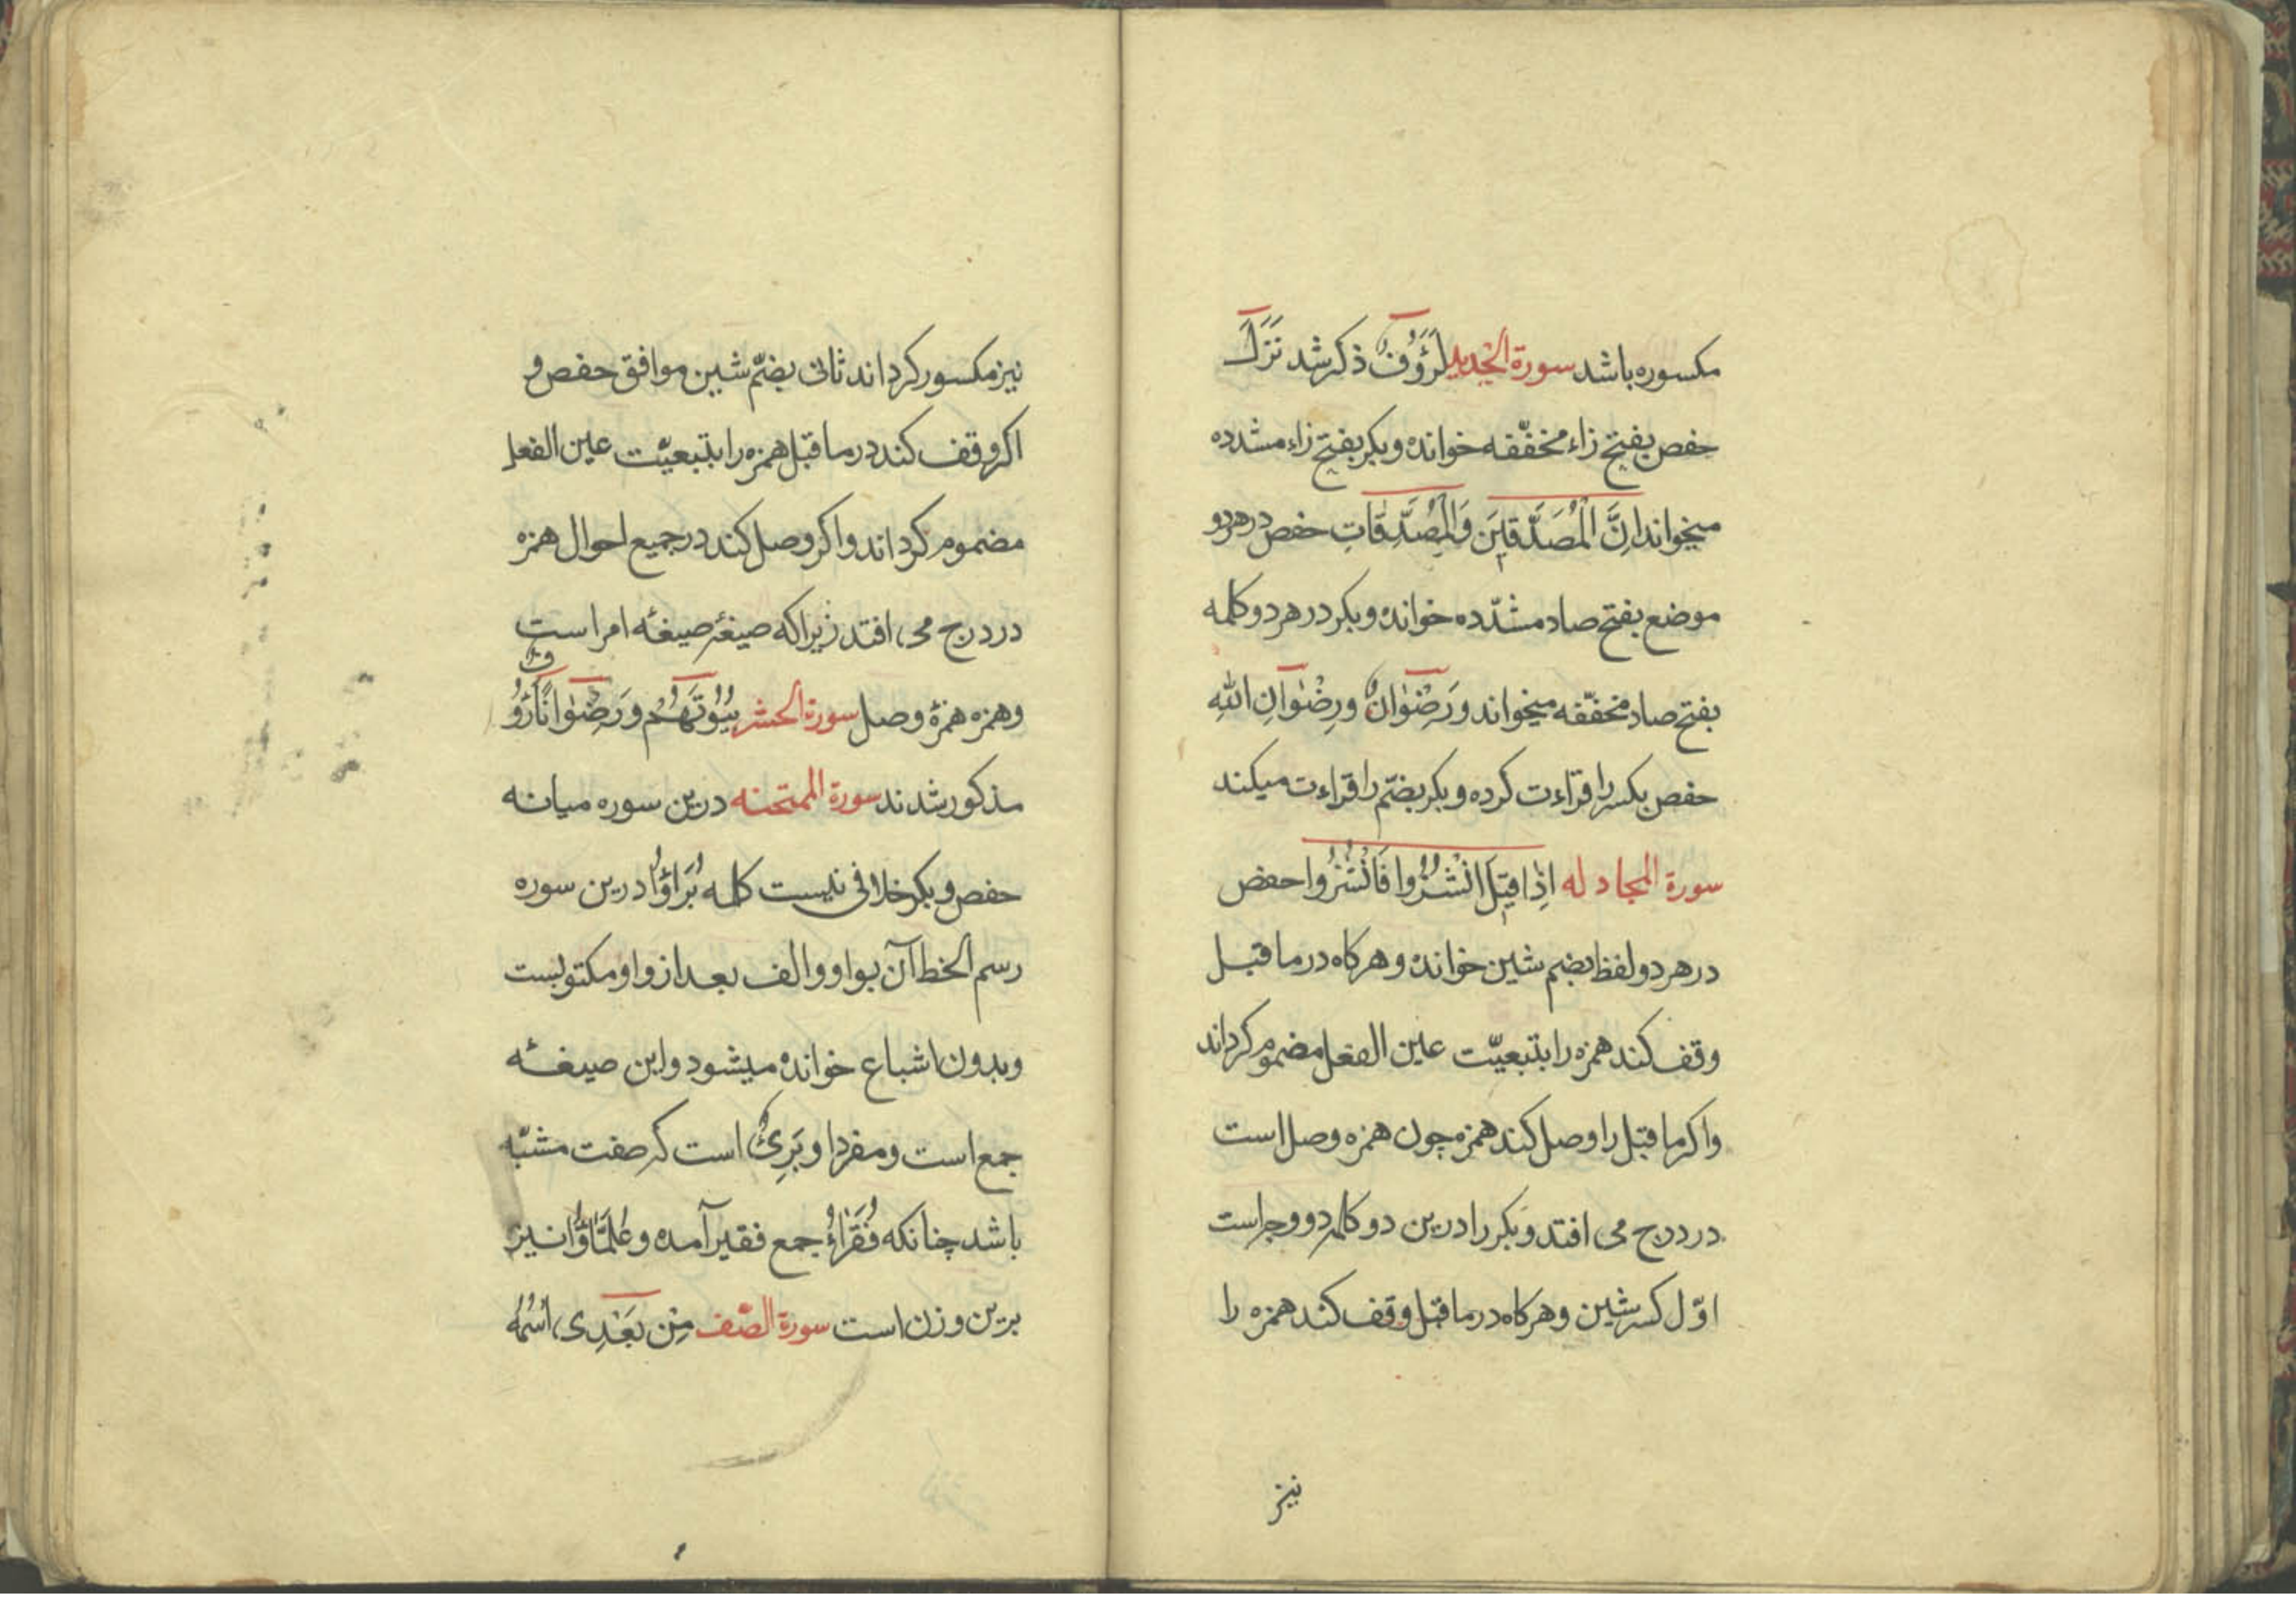 مکسوره باشد سورة الحدید لَرَؤُفٌ ذکر شد نَزَلَ
حفص بفتح زاء مخففّه خوانده و بکر بفتح زاء مشدده
میخواند اِنَّ الْمُصَدِّقینَ وَالْمُصَدِّقاتِ حفص در هر دو
موضع بفتح صاد مشدّده خوانده و بکر در هر دو کلمه
بفتح صاد مخففّه میخواند وَرِضْوٰانٌ ورِضْوٰانِ اللّٰهِ
حفص بکسر را قراءت کرده و بکر بضمّ را قراءت میکند
سورة المجادله اِذٰا قیٖلَ انْشُزُوا فَانْشُزُوا حفص
در هر دو لفظ بضم شین خوانده و هرکاه در ما قبل
وقف کند همزه را بتبعیّت عین الفعل مضموم کرداند
و اکر ما قبل را وصل کند همزه چون همزه وصل است
در درج می افتد و بکر را درین دو کلمه دو وجه است
اوّل کسر شین و هرکاه در ما قبل وقف کند همزه را
نیز
نیز مکسور کرداند ثانی بضمّ شین موافق حفص و
اکر وقف کند در ما قبل همزه را بتبعیّت عین الفعل
مضموم کرداند و اکر وصل کند در جمیع احوال همزه
در درج می افتد زیرا که صیغهٔ صیغهٔ امر است
و همزه همزهٔ وصل سورة الحشر بُیُوتَهُم و رَضِوٰانًا رَؤُ
فٌ
مذکور شدند سورة الممتحنه درین سوره میانه
حفص و بکر خلافی نیست کلمه بُرَاؤُا درین سوره
رسم الخط آن بواو و الف بعد از واو مکتوبست
و بدون اشباع خوانده میشود و این صیغهٔ
جمع است و مفرد او بَرِیءٌ است که صفت مشبّه
باشد چنانکه فُقَرٰاءُ جمع فقیر آمده و عُلَمٰاؤُا نیز
برین وزن است سورة الصّف مِنْ بَعْدِی اسْمُهُ